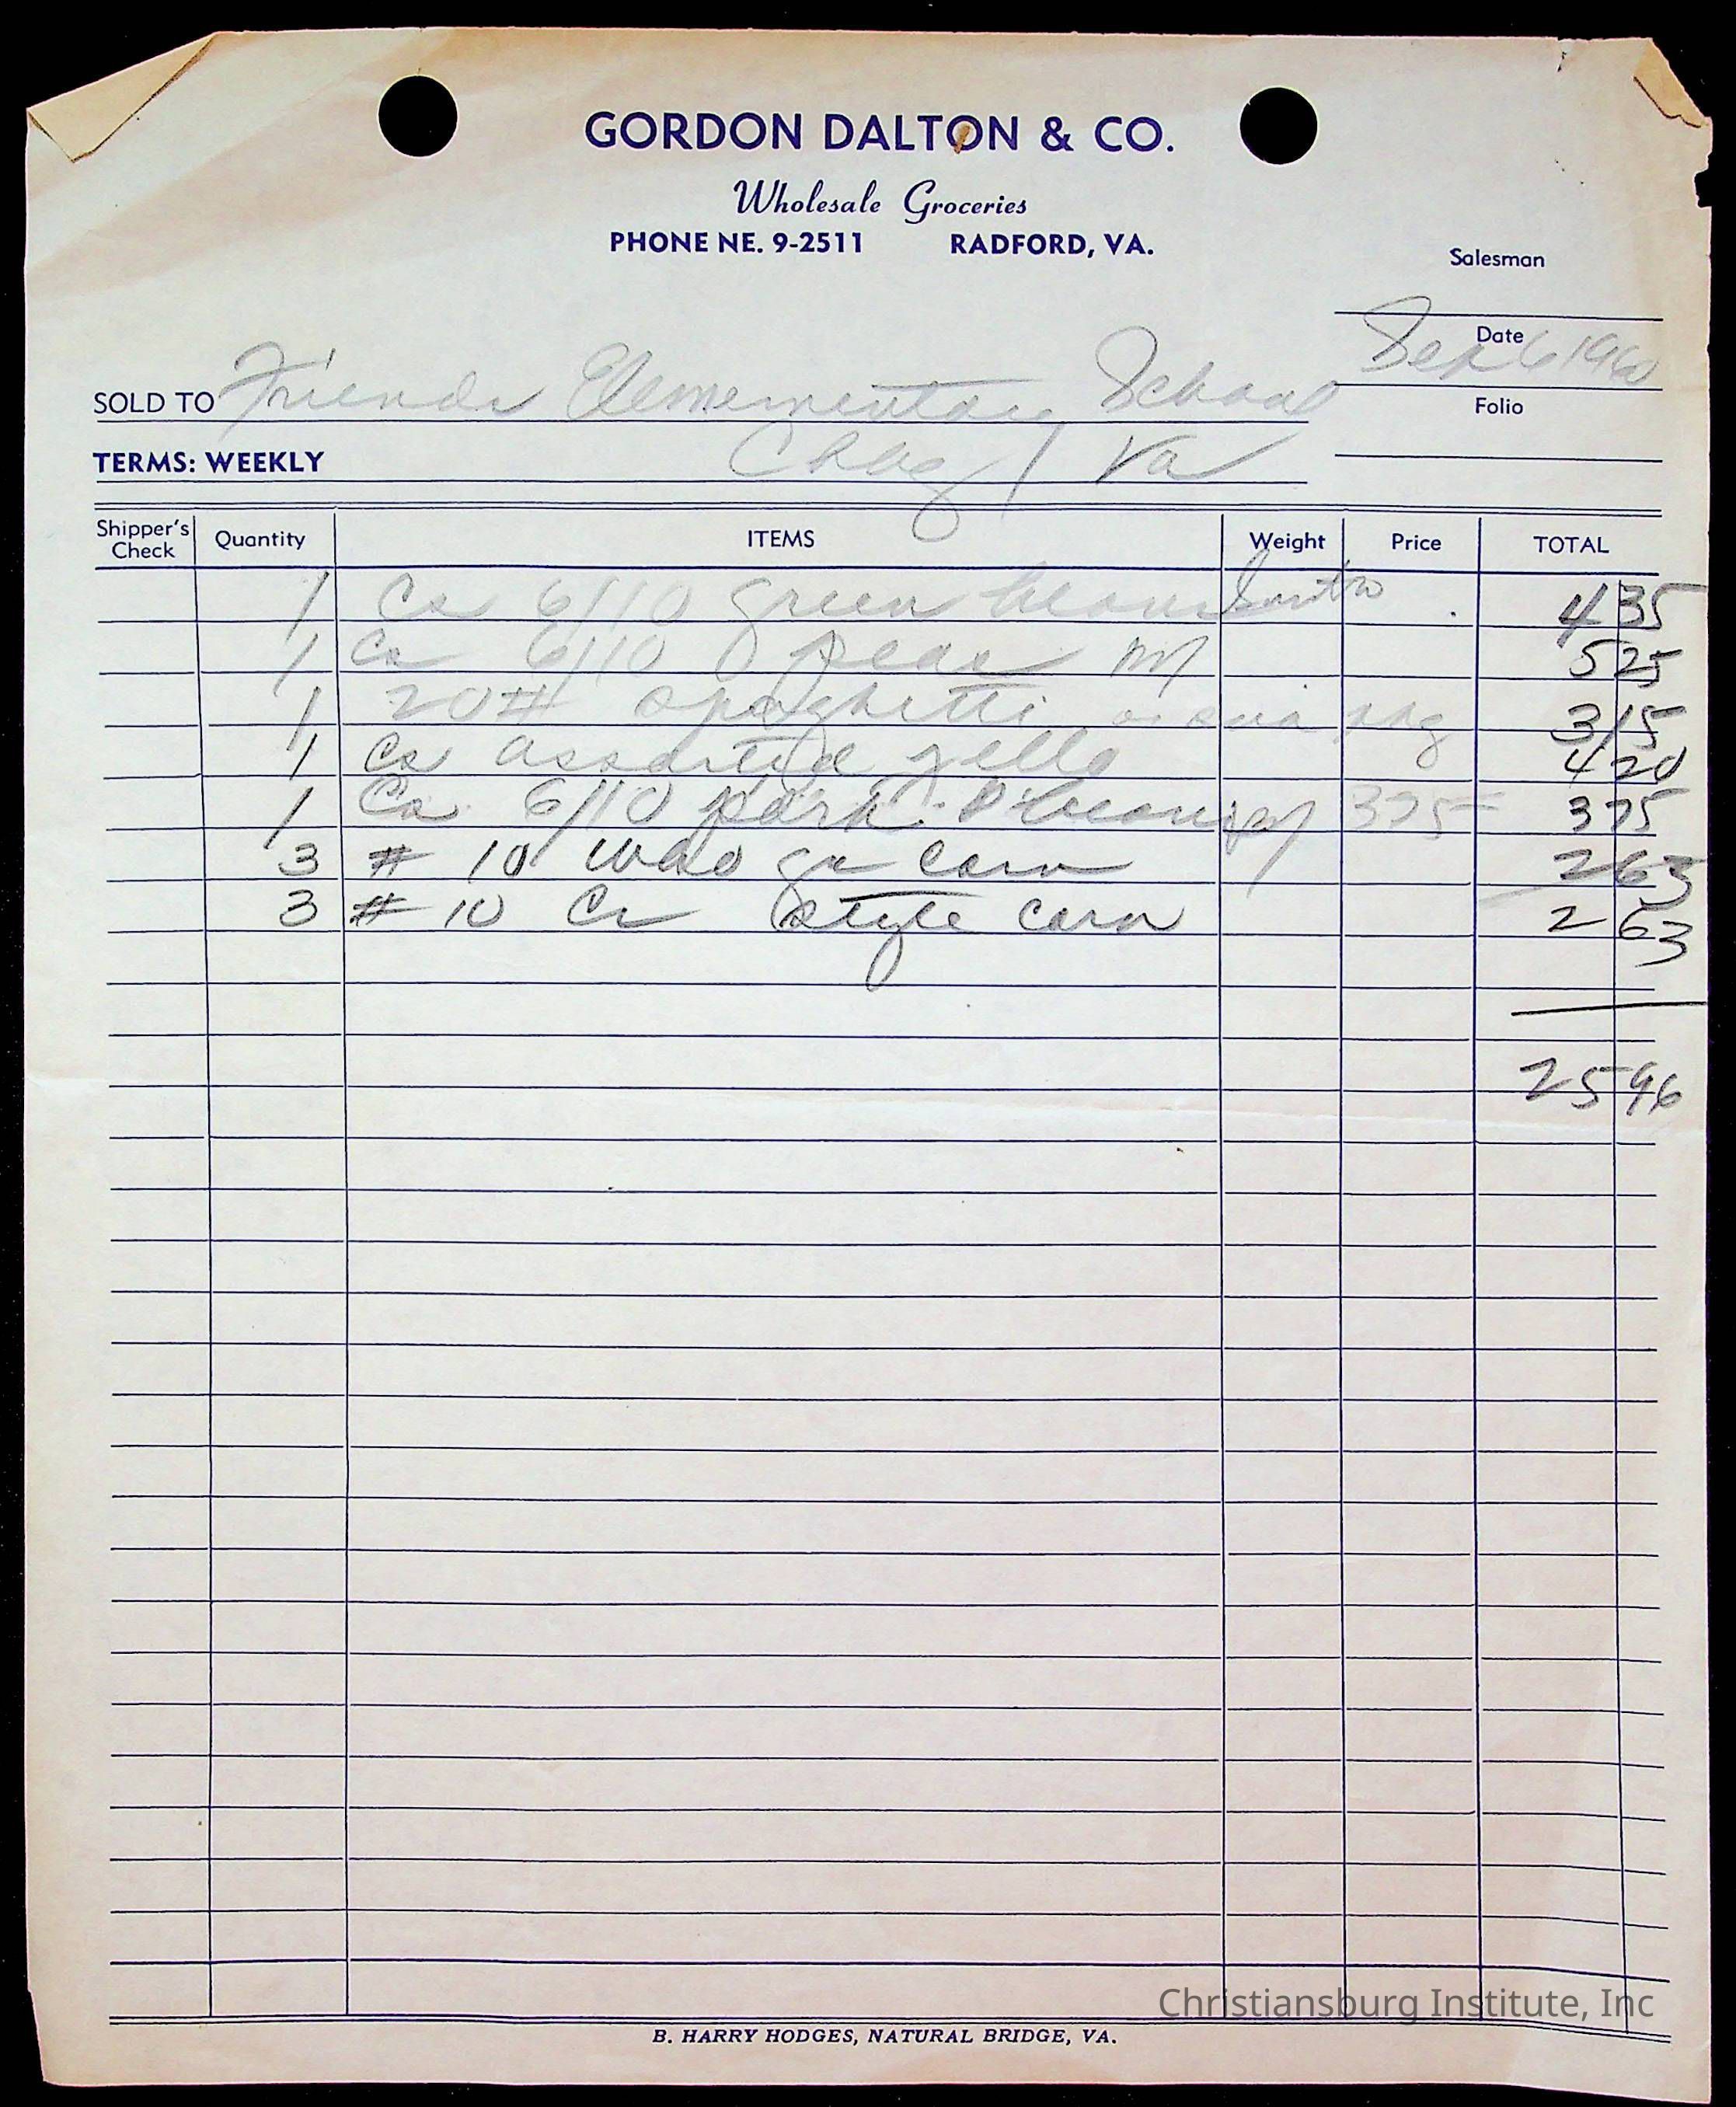 GORDON DALTON & CO.
Wholesale Groceries
PHONE NE. 9-2511 RADFORD, VA.
Salesman
Date
Sep 6 1960
SOLD TO Friends Elementary School
Folio
TERMS: WEEKLY Cbbg, Va
Shipper's Check Quantity ITEMS Weight Price TOTAL
1 Cs 6/10 green beans 4 35
1 Cs 6/10 peas 5 25
1 20# spaghetti pkg 3 15
1 Cs assorted jello 4 20
1 Cs 6/10 pork & beans 375 3 75
3 # 10 corn 2 63
3 # 10 Cr style corn 2 63
25 96
Christiansburg Institute, Inc
B. HARRY HODGES, NATURAL BRIDGE, VA.